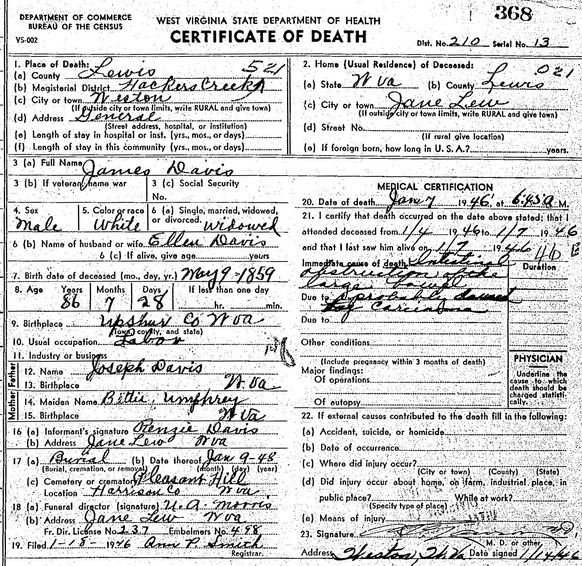 368
DEPARTMENT OF COMMERCE
BUREAU OF THE CENSUS
VS-002
WEST VIRGINIA STATE DEPARTMENT OF HEALTH
CERTIFICATE OF DEATH
Dist. No. 210 Serial No. 13
1. Place of Death: 521
(a) County Lewis
(b) Magisterial District Hackers Creek
(c) City or town Weston
(If outside city or town limits, write RURAL and give town)
(d) Address General
(Street address, hospital, or institution)
(e) Length of stay in hospital or inst. (yrs., mos., or days)
(f) Length of stay in this community (yrs., mos., or days)
2. Home (Usual Residence) of Deceased: 021
(a) State W Va (b) County Lewis
(c) City or town Jane Lew
(If outside city or town limits, write RURAL and give town)
(d) Street No.
(If rural give location)
(e) If foreign born, how long in U. S. A.? years.
3 (a) Full Name James Davis
3 (b) If veteran, name war
3 (c) Social Security
No.
4. Sex
Male
5. Color or race
White
6 (a) Single, married, widowed,
or divorced. widowed
6 (b) Name of husband or wife Ellen Davis
6 (c) If alive, give age years
7. Birth date of deceased (mo., day, yr.) May 9-1859
8. Age Years Months Days If less than one day
86 7 28 hr. min.
9. Birthplace Upshur Co W Va
(Town, county, and state)
10. Usual occupation Labor
11. Industry or business
Father
12. Name Joseph Davis
13. Birthplace W Va
Mother
14. Maiden Name Bittie Umphrey
15. Birthplace W Va
16 (a) Informant's signature Kenzie Davis
(b) Address Jane Lew W Va
17 (a) Burial (b) Date thereof Jan 9-48
(Burial, cremation, or removal) (month) (day) (year)
(c) Cemetery or crematory Pleasant Hill
Location Harrison Co W Va
18 (a) Funeral director (signature) U. A. Morris
(b) Address Jane Lew W Va
Fr. Dir. License No. 237 Embalmers No. 498
19. Filed 1-18-1946 Ann P. Smith
Registrar.
MEDICAL CERTIFICATION
20. Date of Death: Jan 7 1946, at 6:45 a M.
21. I certify that death occurred on the date above stated; that I
attended deceased from 1/4 1946 to 1/7 1946
and that I last saw him alive on 1/7 1946
Immediate cause of death Intestinal
Duration
obstruction of the
large bowel
Due to probably caused
by Carcinoma
Due to
Other conditions
(Include pregnancy within 3 months of death)
Major findings:
Of operations
Of autopsy
PHYSICIAN
Underline
the cause
to which
death should
be charged
statistically.
22. If external causes contributed to the death fill in the following:
(a) Accident, suicide, or homicide
(b) Date of occurrence
(c) Where did injury occur?
(City or town) (County) (State)
(d) Did injury occur about home, on farm, industrial place, in
public place? While at work?
(Specify type of place)
(e) Means of injury
23. Signature
M. D. or other
Address Weston, W. Va Date signed 1/14/46